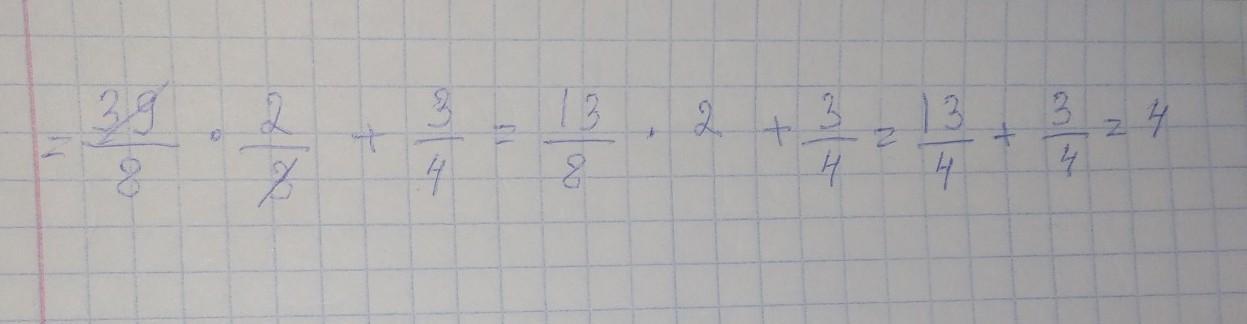 = 39/8 · 2/3 + 3/4 = 13/8 · 2 + 3/4 = 13/4 + 3/4 = 4